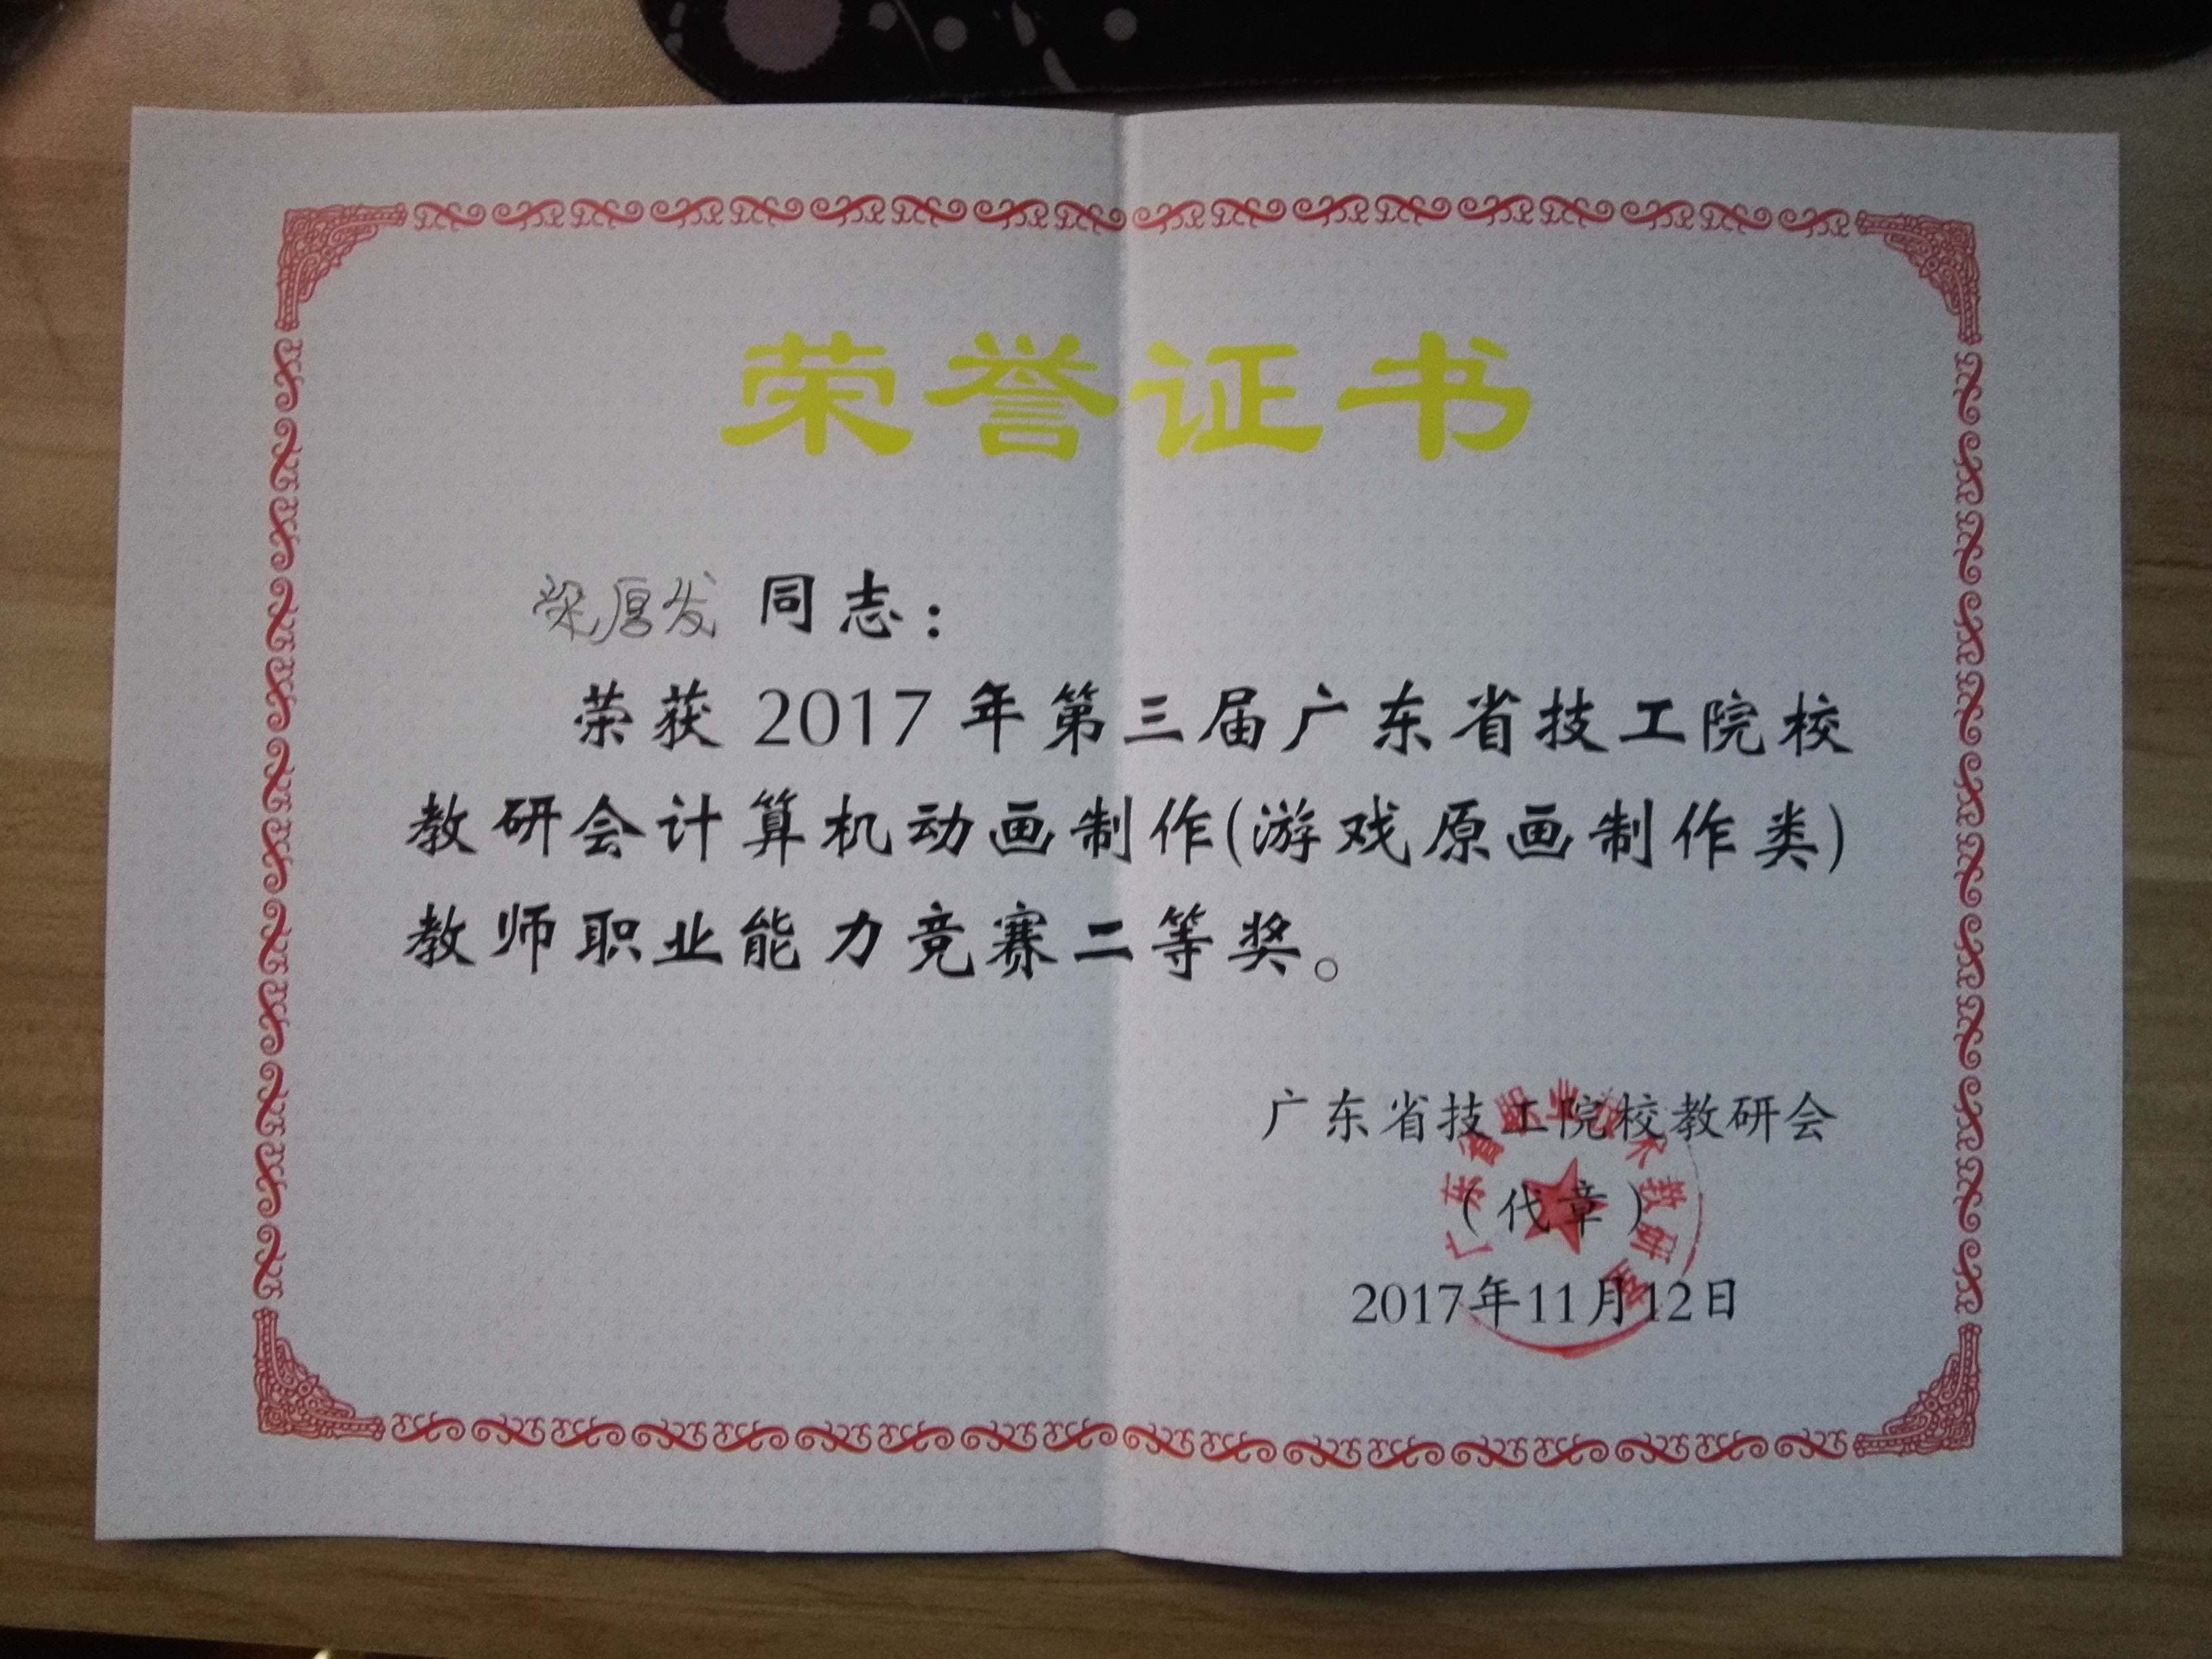 荣誉证书
梁厚发 同志：
荣获 2017 年第三届广东省技工院校
教研会计算机动画制作(游戏原画制作类)
教师职业能力竞赛二等奖。
广东省技工院校教研会
（代章）
2017年11月12日
广东省职业技术教研室